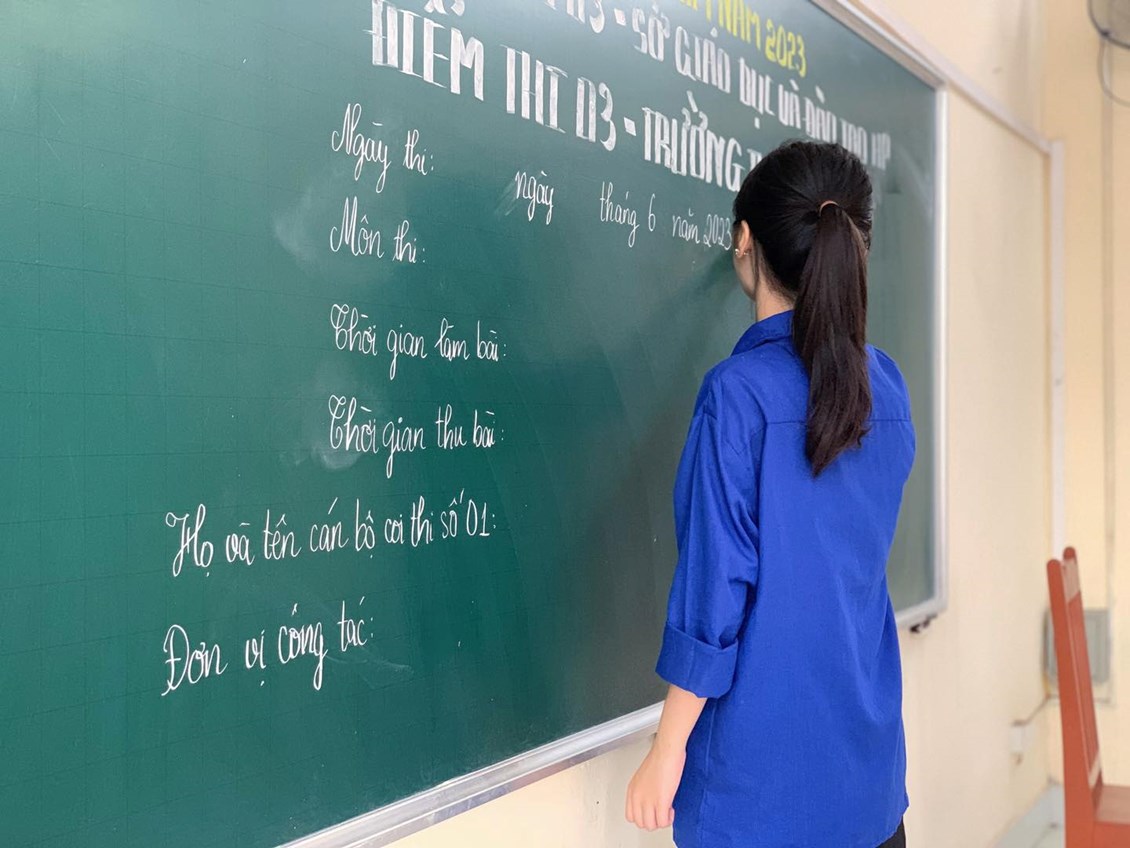 NĂM 2023
- SỞ GIÁO DỤC VÀ ĐÀO TẠO HP
ĐIỂM THI 03 - TRƯỜNG
Ngày thi: ngày tháng 6 năm 2023
Môn thi:
Thời gian làm bài:
Thời gian thu bài:
Họ và tên cán bộ coi thi số 01:
Đơn vị công tác: